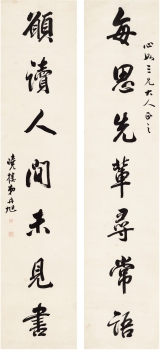 心畇三兄大人正之
每思先輩尋常語
願讀人間未見書